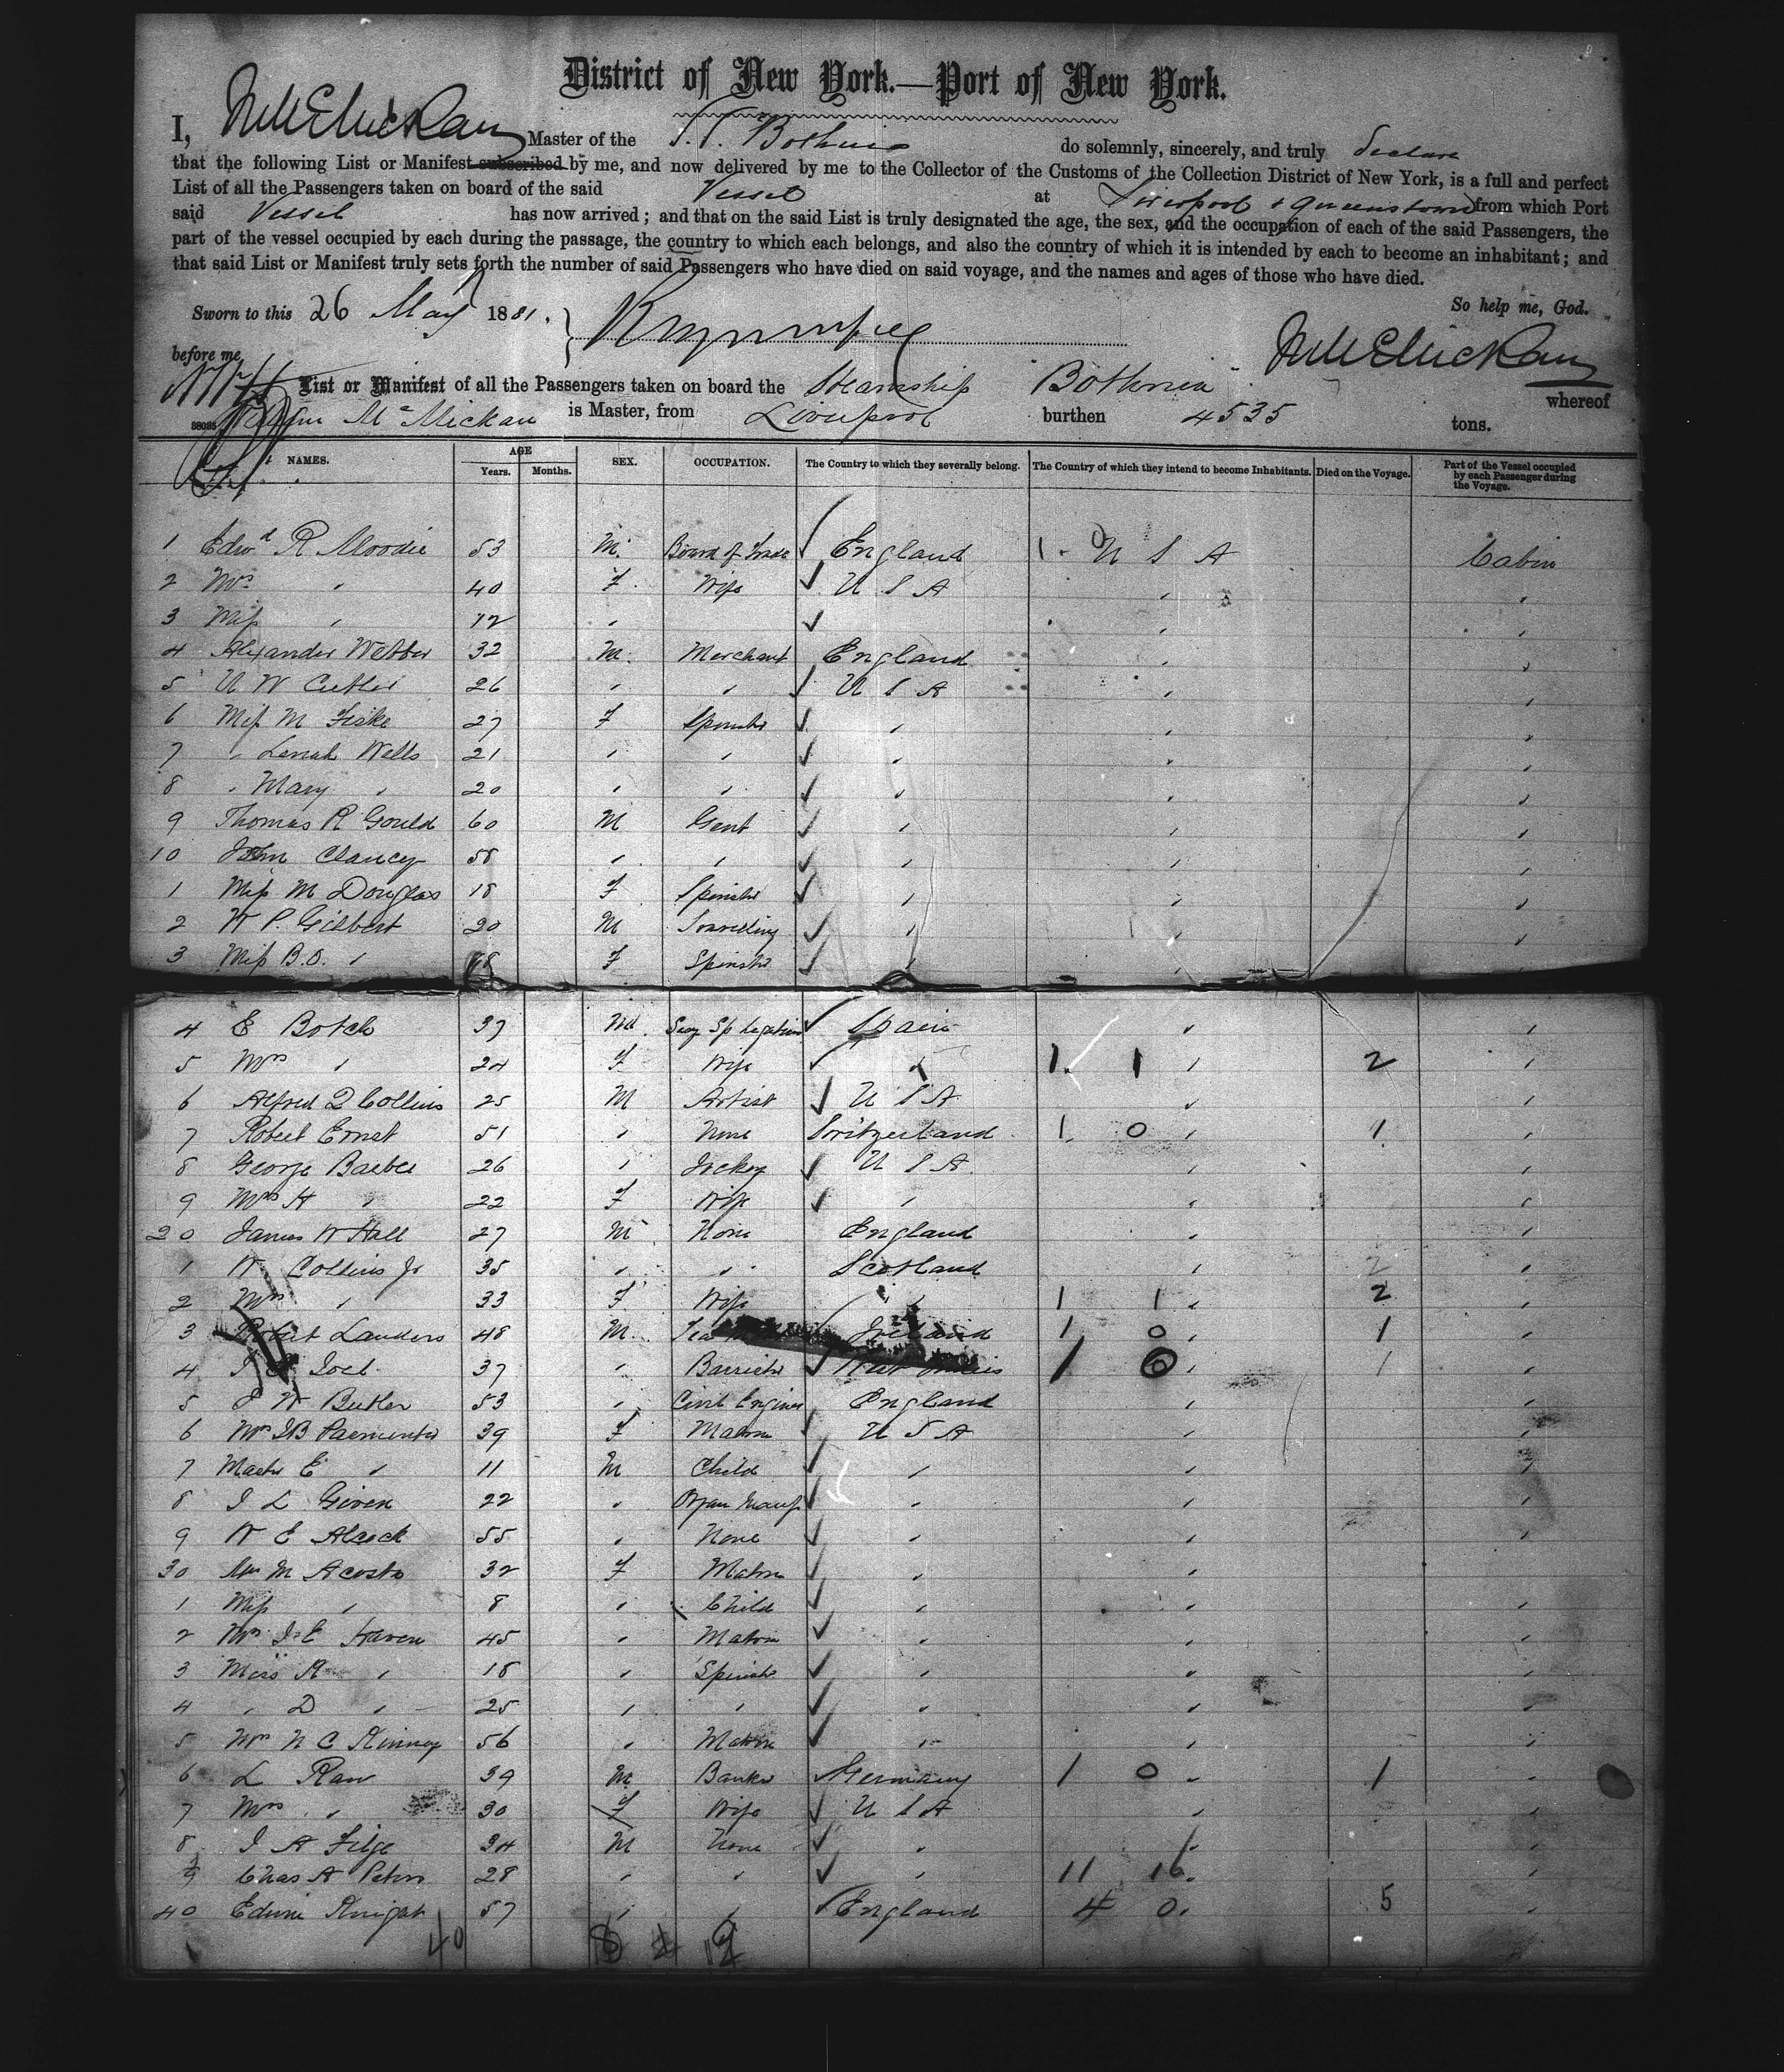 District of New York.—Port of New York.
I, Master of the S.S. Bothnia do solemnly, sincerely, and truly declare
that the following List or Manifest subscribed by me, and now delivered by me to the Collector of the Customs of the Collection District of New York, is a full and perfect
List of all the Passengers taken on board of the said Vessel at Liverpool & Queenstown from which Port
said Vessel has now arrived; and that on the said List is truly designated the age, the sex, and the occupation of each of the said Passengers, the
part of the vessel occupied by each during the passage, the country to which each belongs, and also the country of which it is intended by each to become an inhabitant; and
that said List or Manifest truly sets forth the number of said Passengers who have died on said voyage, and the names and ages of those who have died.
So help me, God.
Sworn to this 26 May 1881.
before me
List or Manifest of all the Passengers taken on board the Steamship Bothnia whereof
McMickan is Master, from Liverpool burthen 4535 tons.
NAMES. AGE Years. Months. SEX. OCCUPATION. The Country to which they severally belong. The Country of which they intend to become Inhabitants. Died on the Voyage. Part of the Vessel occupied by each Passenger during the Voyage.
1 Edwd R Moodie 53 M. Board of Trade England 1 - 0 U S A Cabin
2 Mrs " 40 F. Wife U S A " "
3 Miss " 12 " " "
4 Alexander Webber 32 M. Merchant England " "
5 U W Cutler 26 " " U S A " "
6 Miss M Fiske 27 F Spinstr " " "
7 " Lenah Wells 21 " " " " "
8 " Mary " 20 " " " " "
9 Thomas R Gould 60 M Gent " " "
10 John Clancy 58 " " " " "
1 Miss M Douglas 18 F Spinstr " " "
2 W P. Gilbert 20 M Travelling " " "
3 Miss B.O. " 18 F Spinstr " "
4 E Botch 37 M. Secy Sp Legation Spain " "
5 Mrs " 24 F Wife " 1 1 " 2 "
6 Alfred Q Collins 25 M Artist U S A " "
7 Robert Ernst 51 " None Switzerland 1 0 " 1 "
8 George Barbee 26 " Jockey U S A " "
9 Mrs H " 22 F Wife " " "
20 James W Hall 27 M None England " "
1 W Collins Jr 35 " " Scotland " 2 "
2 Mrs " 33 F Wife " 1 1 " 2 "
3 Robert Landers 48 M. Ireland 1 0 " 1 "
4 Joel 37 " Barristr 1 0 " 1 "
5 W Butler 53 " Civil Engineer England " "
6 Mrs J B Parmenter 39 F Matron U S A " "
7 Mastr E " 11 M Child " " "
8 J L Given 22 " Organ Manuf " " "
9 W E Alcock 55 " None " " "
30 Mrs M Acosta 32 F Matron " " "
1 Miss " 8 " Child " " "
2 Mrs J E Haven 45 " Matron " " "
3 Miss A " 18 " Spinstr " " "
4 " D " 25 " " " " "
5 Mrs N C Kinney 56 " Matron " " "
6 L Rau 39 M Banker Germany 1 0 " 1 "
7 Mrs " 30 F Wife U S A " "
8 J A Filge 34 M None " " "
9 Chas A Peters 28 " " " 11 16 "
40 Edwin Knight 57 " " England 4 0 " 5 "
40